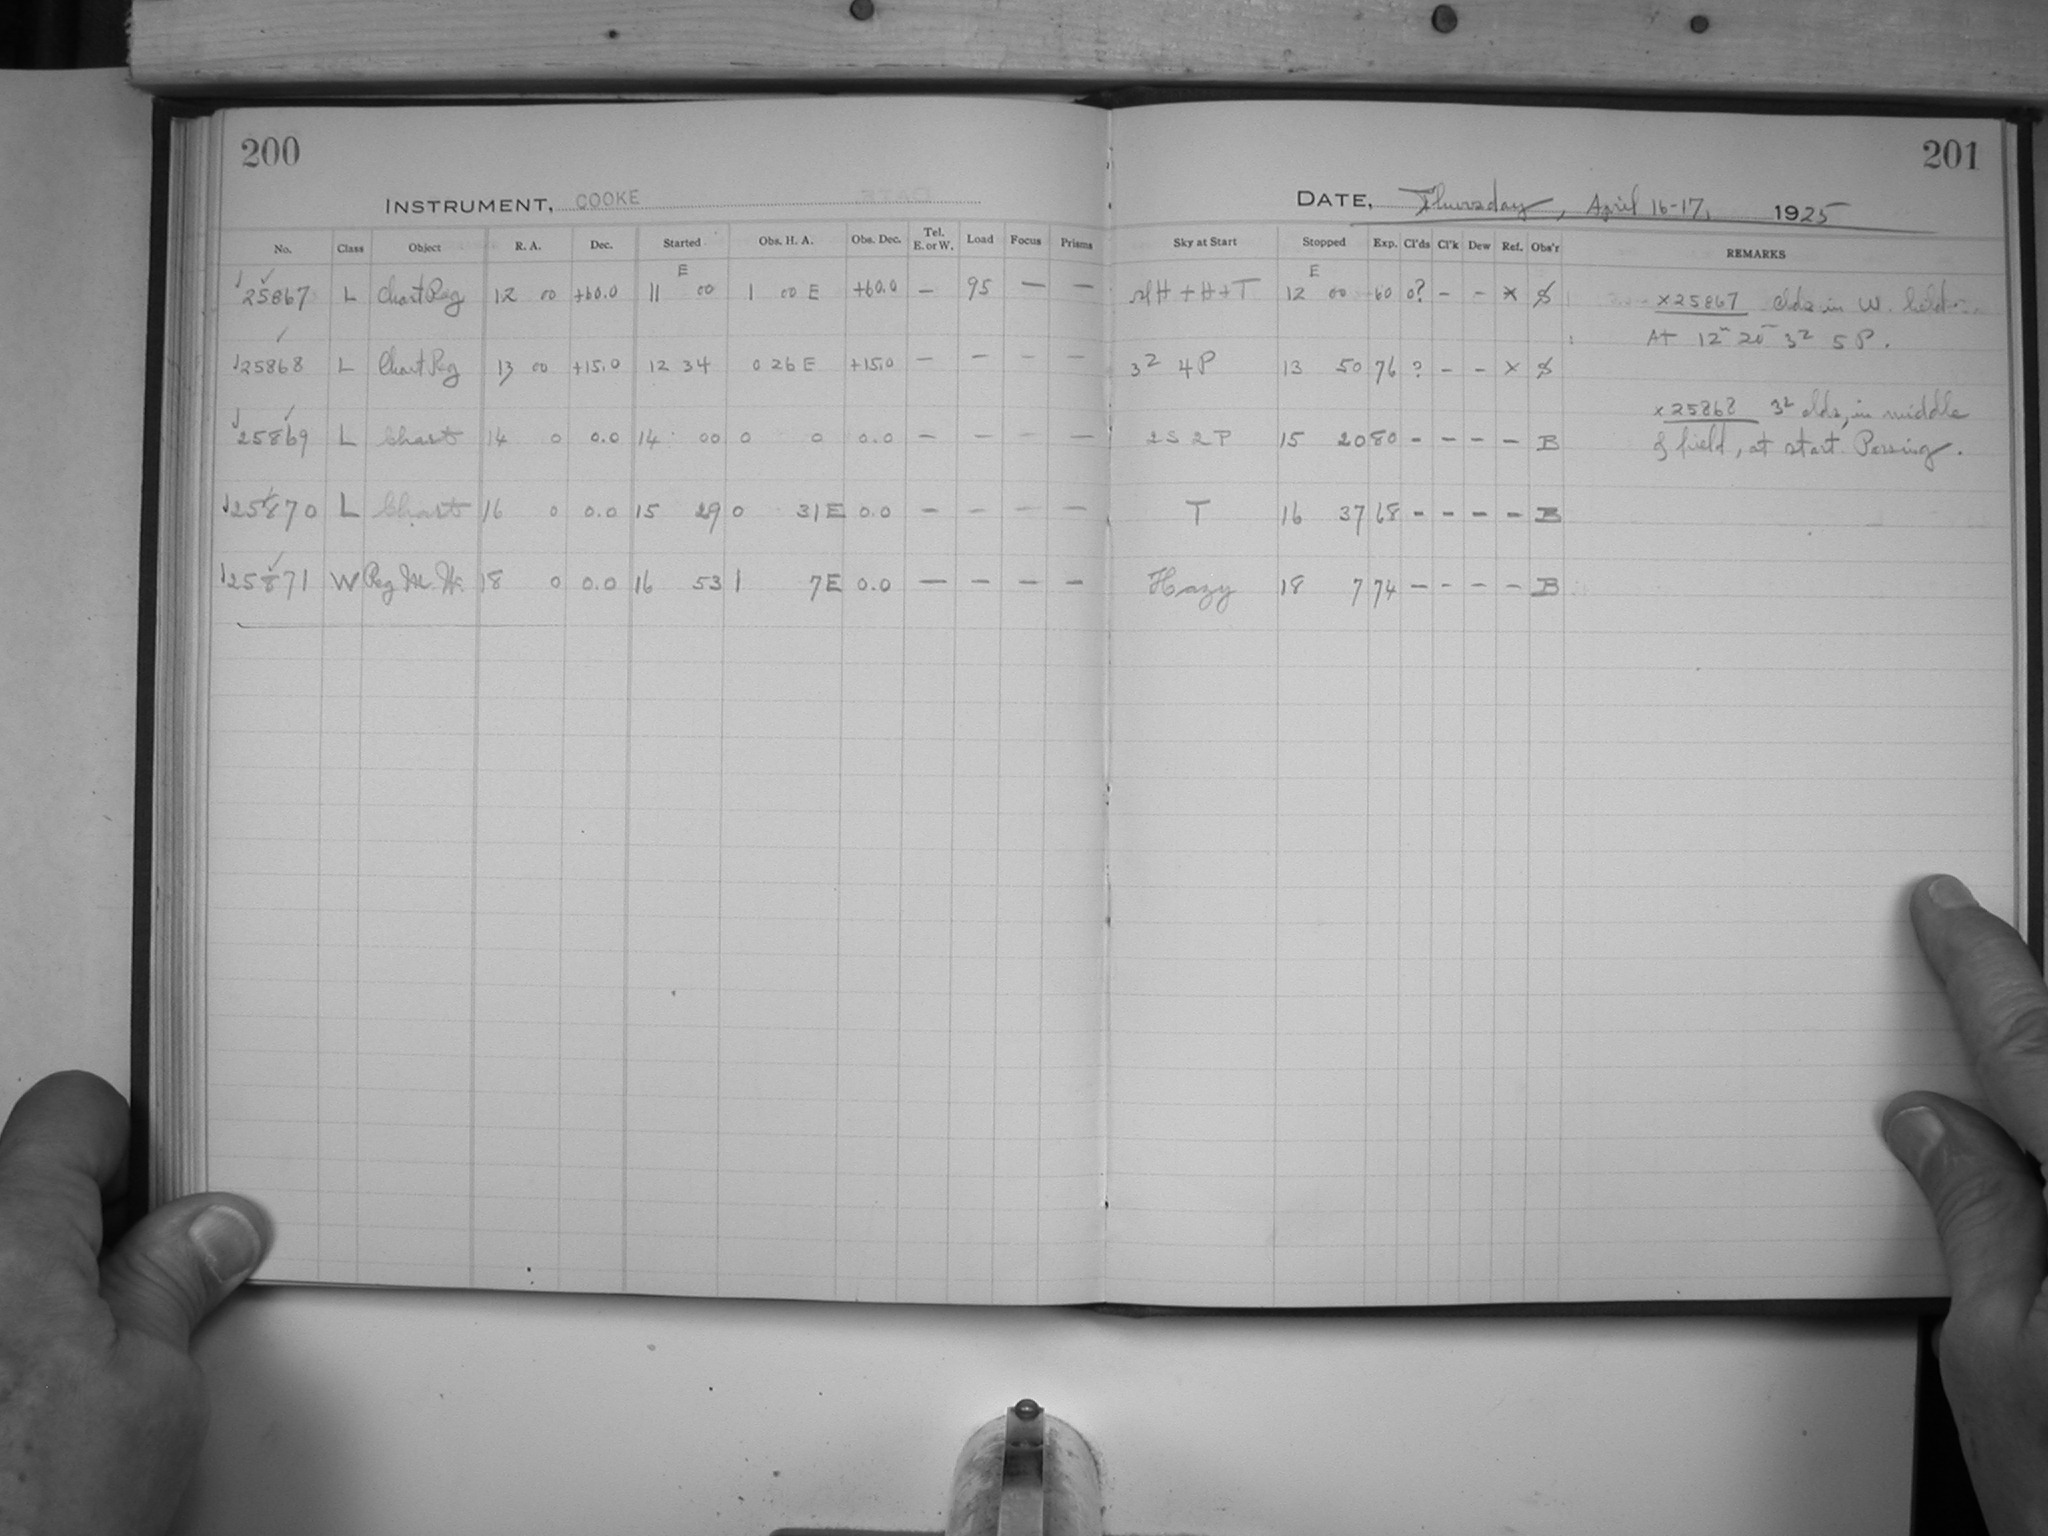 200 201
INSTRUMENT, COOKE DATE, Thursday, April 16-17, 1925
No. Class Object R. A. Dec. Started Obs. H. A. Obs. Dec. Tel. E. or W. Load Focus Prisms Sky at Start Stopped Exp. Cl'ds Cl'k Dew Ref. Obs'r REMARKS
E E
25867 L Chart Reg 12 00 +60.0 11 00 1 00 E +60.0 — 95 — — H + H + T 12 00 60 0? - - x x25867 clds in W.
At 12h 20m 3² 5 P.
25868 L Chart Reg 13 00 +15.0 12 34 0 26 E +15.0 — — — — 3² 4P 13 50 76 ? - - x
x25868 3² clds, in middle
25869 L Chart 14 0 0.0 14 00 0 0 0.0 — — — — 2S 2P 15 20 80 - - - - B of field, at start. Passing.
25870 L Chart 16 0 0.0 15 29 0 31 E 0.0 — — — — T 16 37 68 - - - - B
25871 W Reg M. W. 18 0 0.0 16 53 1 7 E 0.0 — — — — Hazy 18 7 74 - - - - B